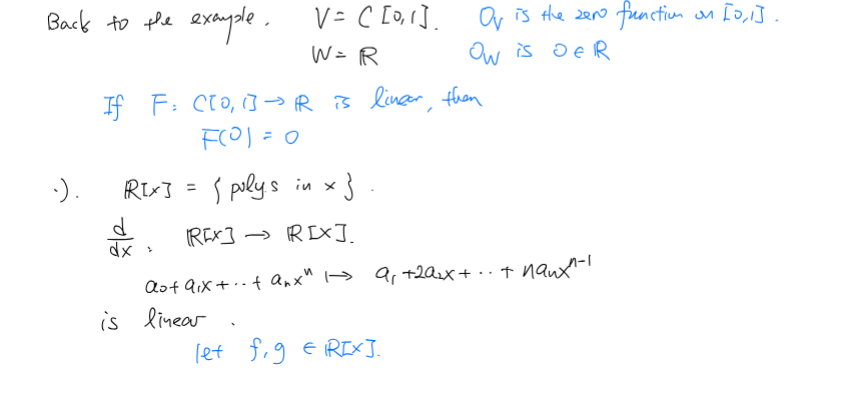 Back to the example. V = C[0,1]. O_V is the zero function on [0,1].
W = ℝ O_W is 0 ∈ ℝ
If F: C[0,1] → ℝ is linear, then
F(0) = 0
·). ℝ[x] = { polys in x }.
d/dx : ℝ[x] → ℝ[x].
a₀ + a₁x + ·· + aₙxⁿ ↦ a₁ + 2a₂x + ·· + naₙxⁿ⁻¹
is linear.
let f, g ∈ ℝ[x].